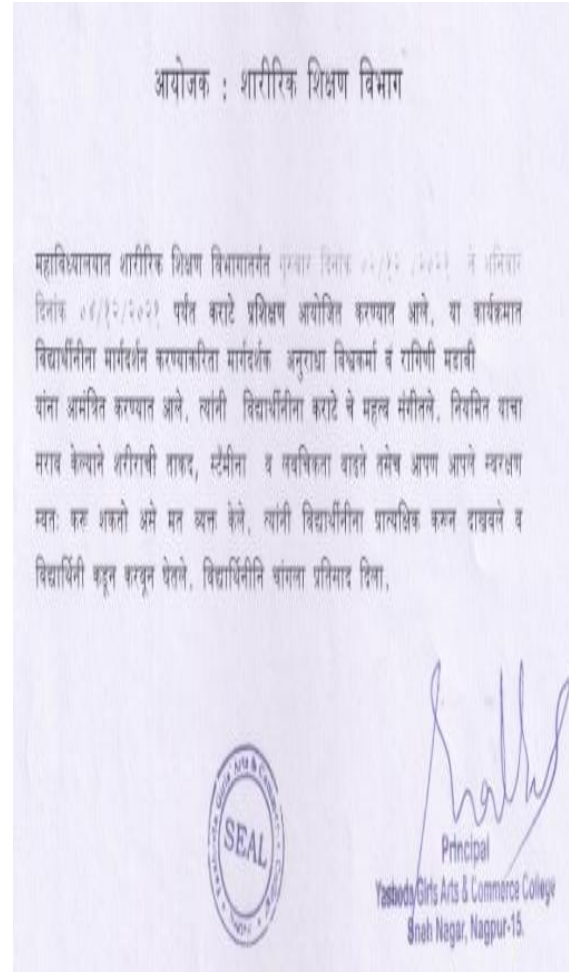 आयोजक : शारीरिक शिक्षण विभाग
महाविध्यालयात शारीरिक शिक्षण विभागातर्गत गुरुवार दिनांक ०२/१२ /२०२१ ते शनिवार
दिनांक ०४/१२/२०२१ पर्यंत कराटे प्रशिक्षण आयोजित करण्यात आले. या कार्यक्रमात
विद्यार्थीनीना मार्गदर्शन करण्याकरिता मार्गदर्शक अनुराधा विश्वकर्मा व रागिणी मडावी
यांना आमंत्रित करण्यात आले. त्यांनी विद्यार्थीनीना कराटे चे महत्व संगीतले. नियमित याचा
सराव केल्याने शरीराची ताकद, स्टॅमीना व लवचिकता वाढते तसेच आपण आपले स्वरक्षण
स्वतः करू शकतो असे मत व्यक्त केले. त्यांनी विद्यार्थीनीना प्रात्यक्षिक करून दाखवले व
विद्यार्थिनी कडून करवून घेतले. विद्यार्थिनीनि चांगला प्रतिसाद दिला.
Yashoda Girls Arts & Commerce College
SEAL
Principal
Yashoda Girls Arts & Commerce College
Snah Nagar, Nagpur-15.